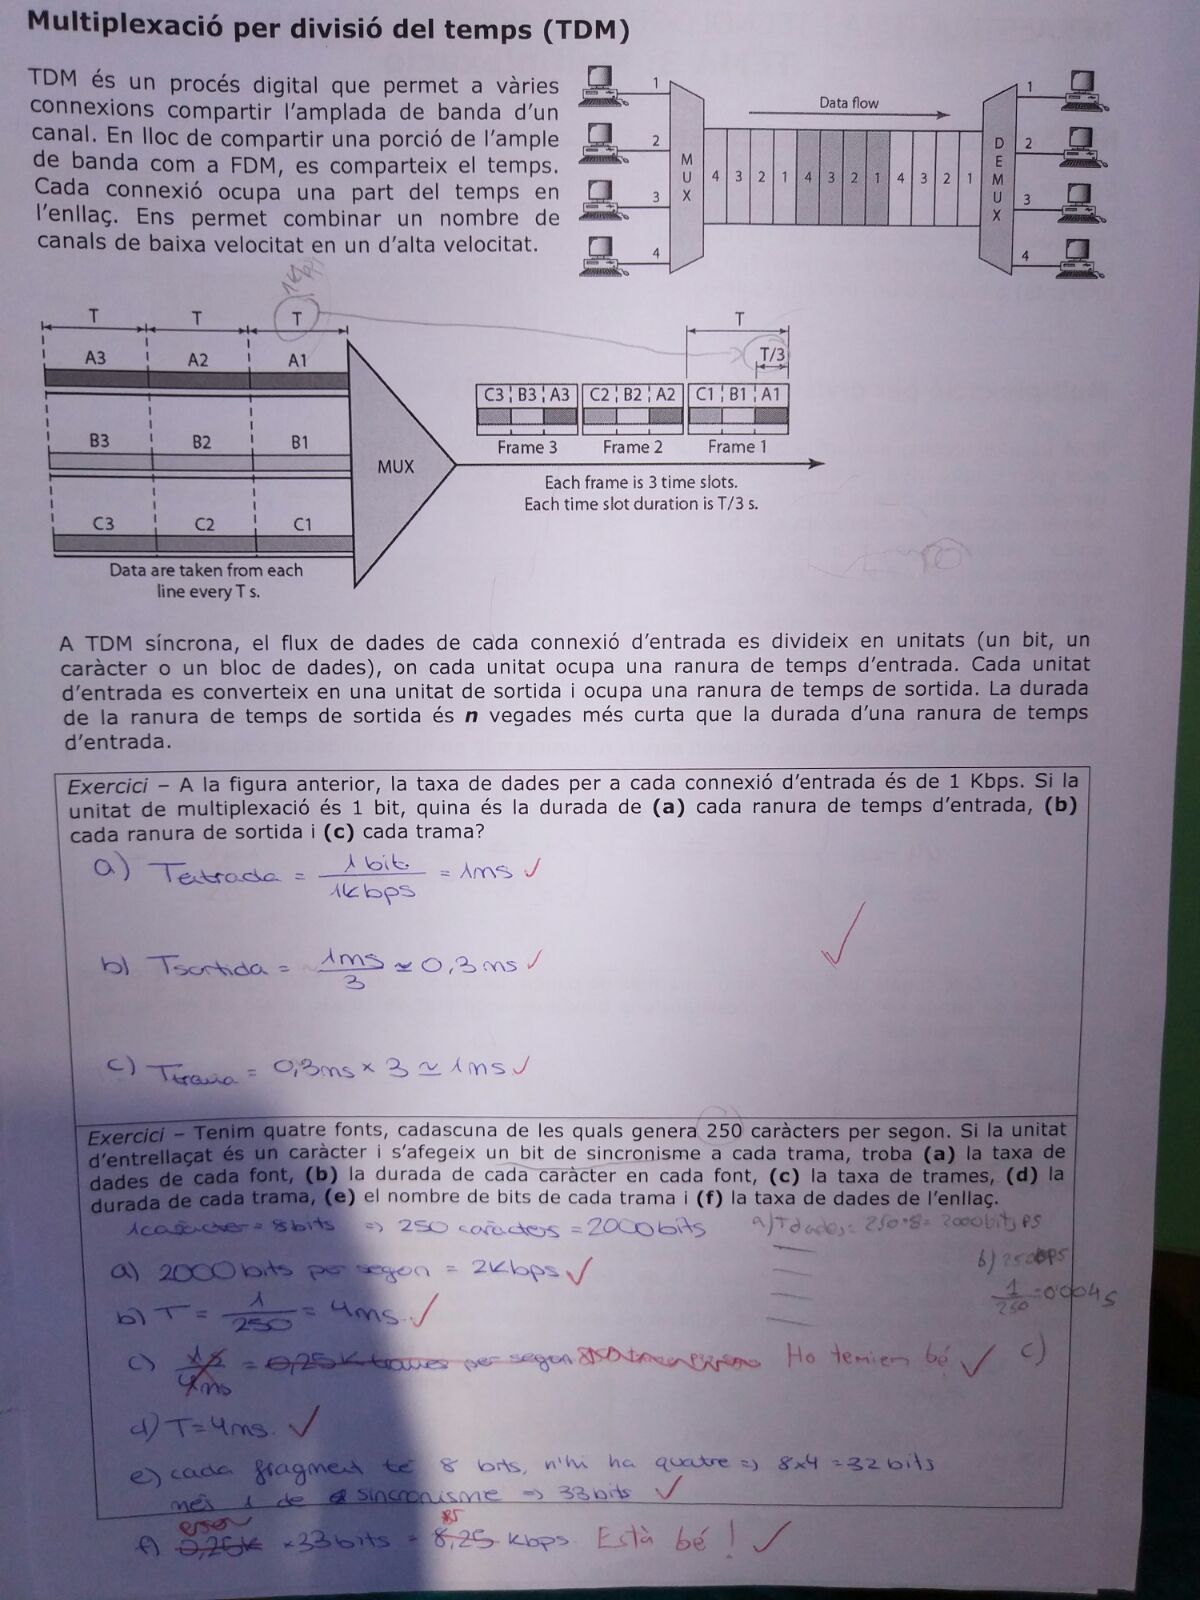 Multiplexació per divisió del temps (TDM)
TDM és un procés digital que permet a vàries
connexions compartir l'amplada de banda d'un
canal. En lloc de compartir una porció de l'ample
de banda com a FDM, es comparteix el temps.
Cada connexió ocupa una part del temps en
l'enllaç. Ens permet combinar un nombre de
canals de baixa velocitat en un d'alta velocitat.
Data flow
1 1
2 2
3 3
4 4
MUX
4 3 2 1 4 3 2 1 4 3 2 1
DEMUX
T T T T
T/3
A3 A2 A1
B3 B2 B1
C3 C2 C1
MUX
C3 B3 A3 C2 B2 A2 C1 B1 A1
Frame 3 Frame 2 Frame 1
Each frame is 3 time slots.
Each time slot duration is T/3 s.
Data are taken from each
line every T s.
A TDM síncrona, el flux de dades de cada connexió d'entrada es divideix en unitats (un bit, un
caràcter o un bloc de dades), on cada unitat ocupa una ranura de temps d'entrada. Cada unitat
d'entrada es converteix en una unitat de sortida i ocupa una ranura de temps de sortida. La durada
de la ranura de temps de sortida és n vegades més curta que la durada d'una ranura de temps
d'entrada.
Exercici – A la figura anterior, la taxa de dades per a cada connexió d'entrada és de 1 Kbps. Si la
unitat de multiplexació és 1 bit, quina és la durada de (a) cada ranura de temps d'entrada, (b)
cada ranura de sortida i (c) cada trama?
a) Tentrada = 1 bit / 1kbps = 1ms
b) Tsortida = 1ms / 3 ≃ 0,3 ms
c) Ttrama = 0,3ms × 3 ≃ 1ms
Exercici – Tenim quatre fonts, cadascuna de les quals genera 250 caràcters per segon. Si la unitat
d'entrellaçat és un caràcter i s'afegeix un bit de sincronisme a cada trama, troba (a) la taxa de
dades de cada font, (b) la durada de cada caràcter en cada font, (c) la taxa de trames, (d) la
durada de cada trama, (e) el nombre de bits de cada trama i (f) la taxa de dades de l'enllaç.
1caràcter = 8bits => 250 caràcters = 2000bits
a) Tdades = 250·8 = 2000bits ps
a) 2000bits per segon = 2Kbps
b) 250
1/250 = 0'004s
b) T = 1/250 = 4ms.
c) 4ms = 0,25 K trames per segon Ho teniem bé
c)
d) T=4ms.
e) cada fragment té 8 bits, n'hi ha quatre => 8x4 = 32 bits
més 1 de sincronisme => 33bits
f) 0,25k ×33bits = 8,25 Kbps. Està bé!